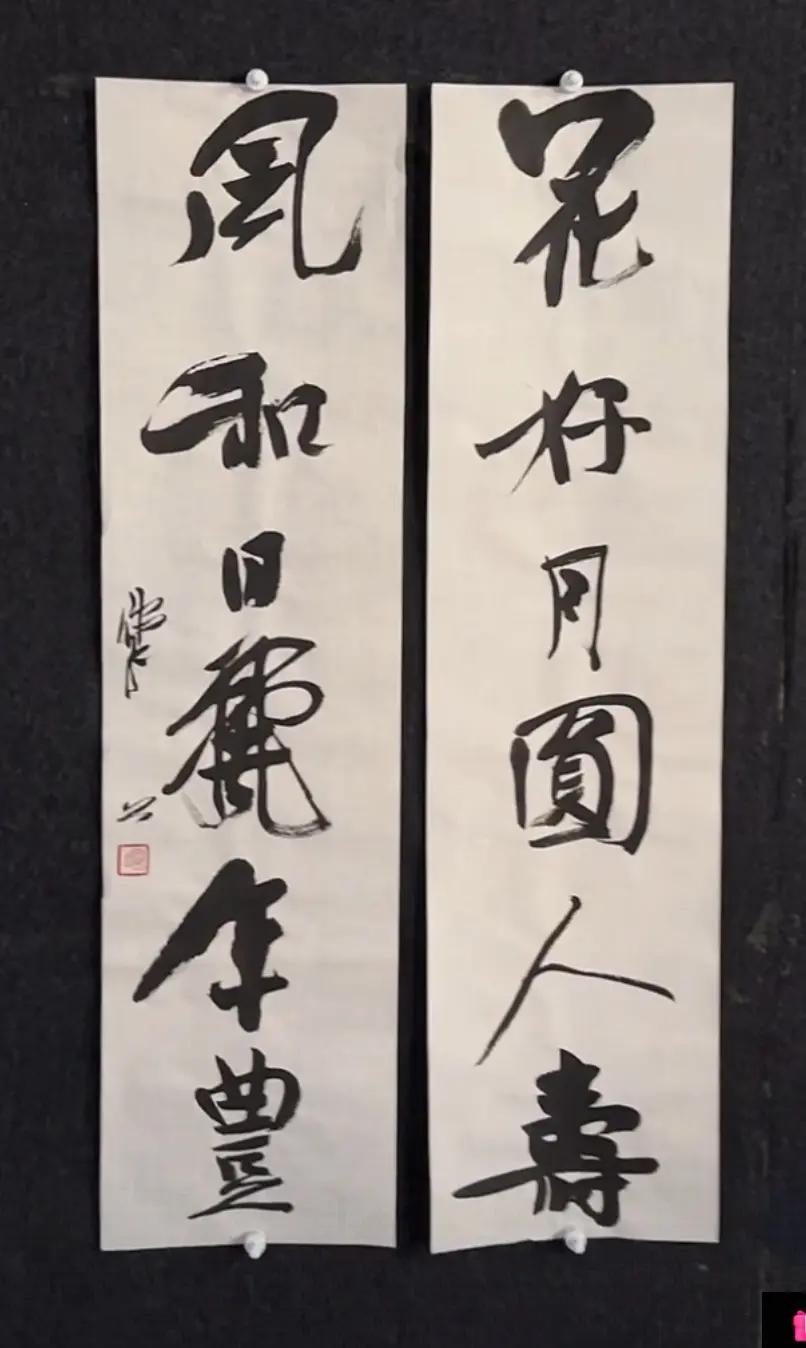 花好月圓人壽
風和日麗年豐